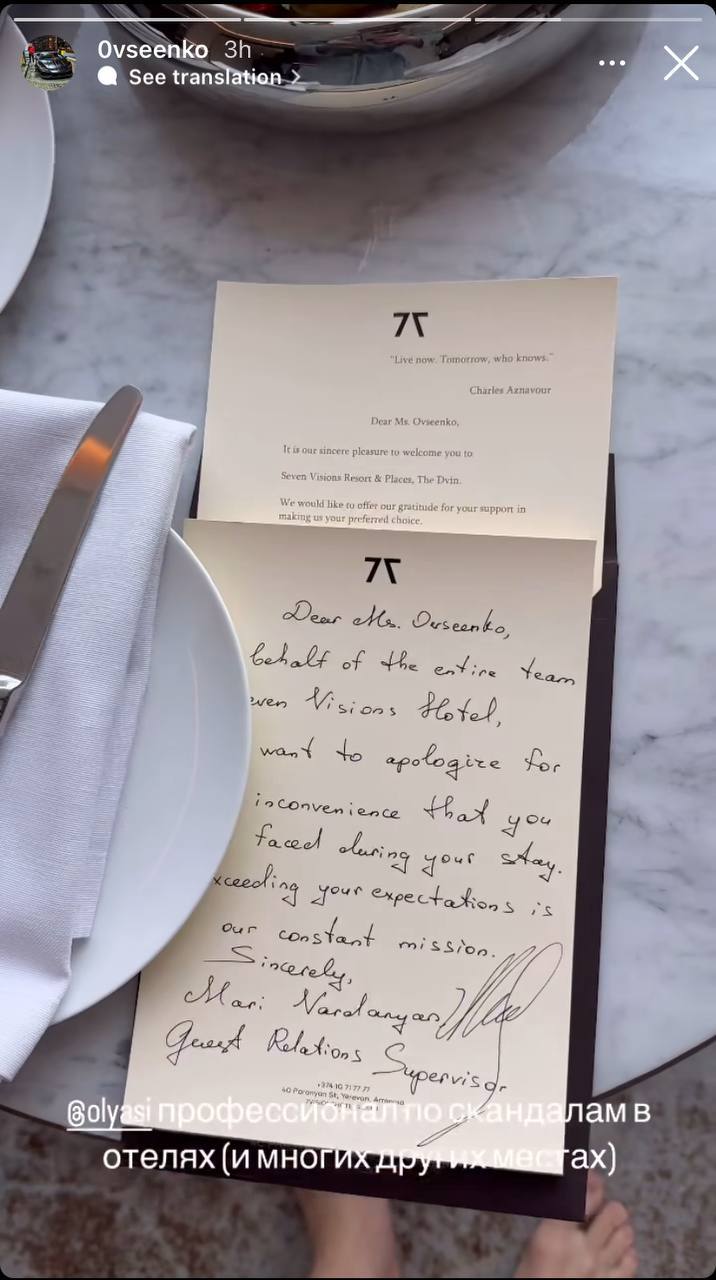 Ovseenko 3h
See translation >
"Live now. Tomorrow, who knows."
Charles Aznavour
Dear Ms. Ovseenko,
It is our sincere pleasure to welcome you to
Seven Visions Resort & Places, The Dvin.
We would like to offer our gratitude for your support in
making us your preferred choice.
Dear Ms. Ovseenko,
behalf of the entire team
even Visions Hotel,
want to apologize for
inconvenience that you
faced during your stay.
xceeding your expectations is
our constant mission.
Sincerely,
Mari Vardanyan
Guest Relations Supervisor
+374 10 71 77 77
40 Paronyan St, Yerevan, Armenia
@olyasi профессионал по скандалам в
отелях (и многих других местах)